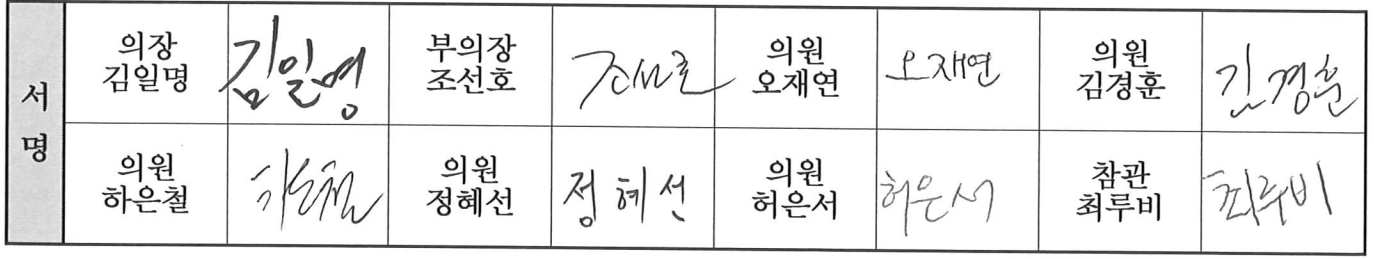 서명
의장
김일명
김일명
부의장
조선호
조선호
의원
오재연
오재연
의원
김경훈
김경훈
의원
하은철
하은철
의원
정혜선
정혜선
의원
허은서
허은서
참관
최루비
최루비